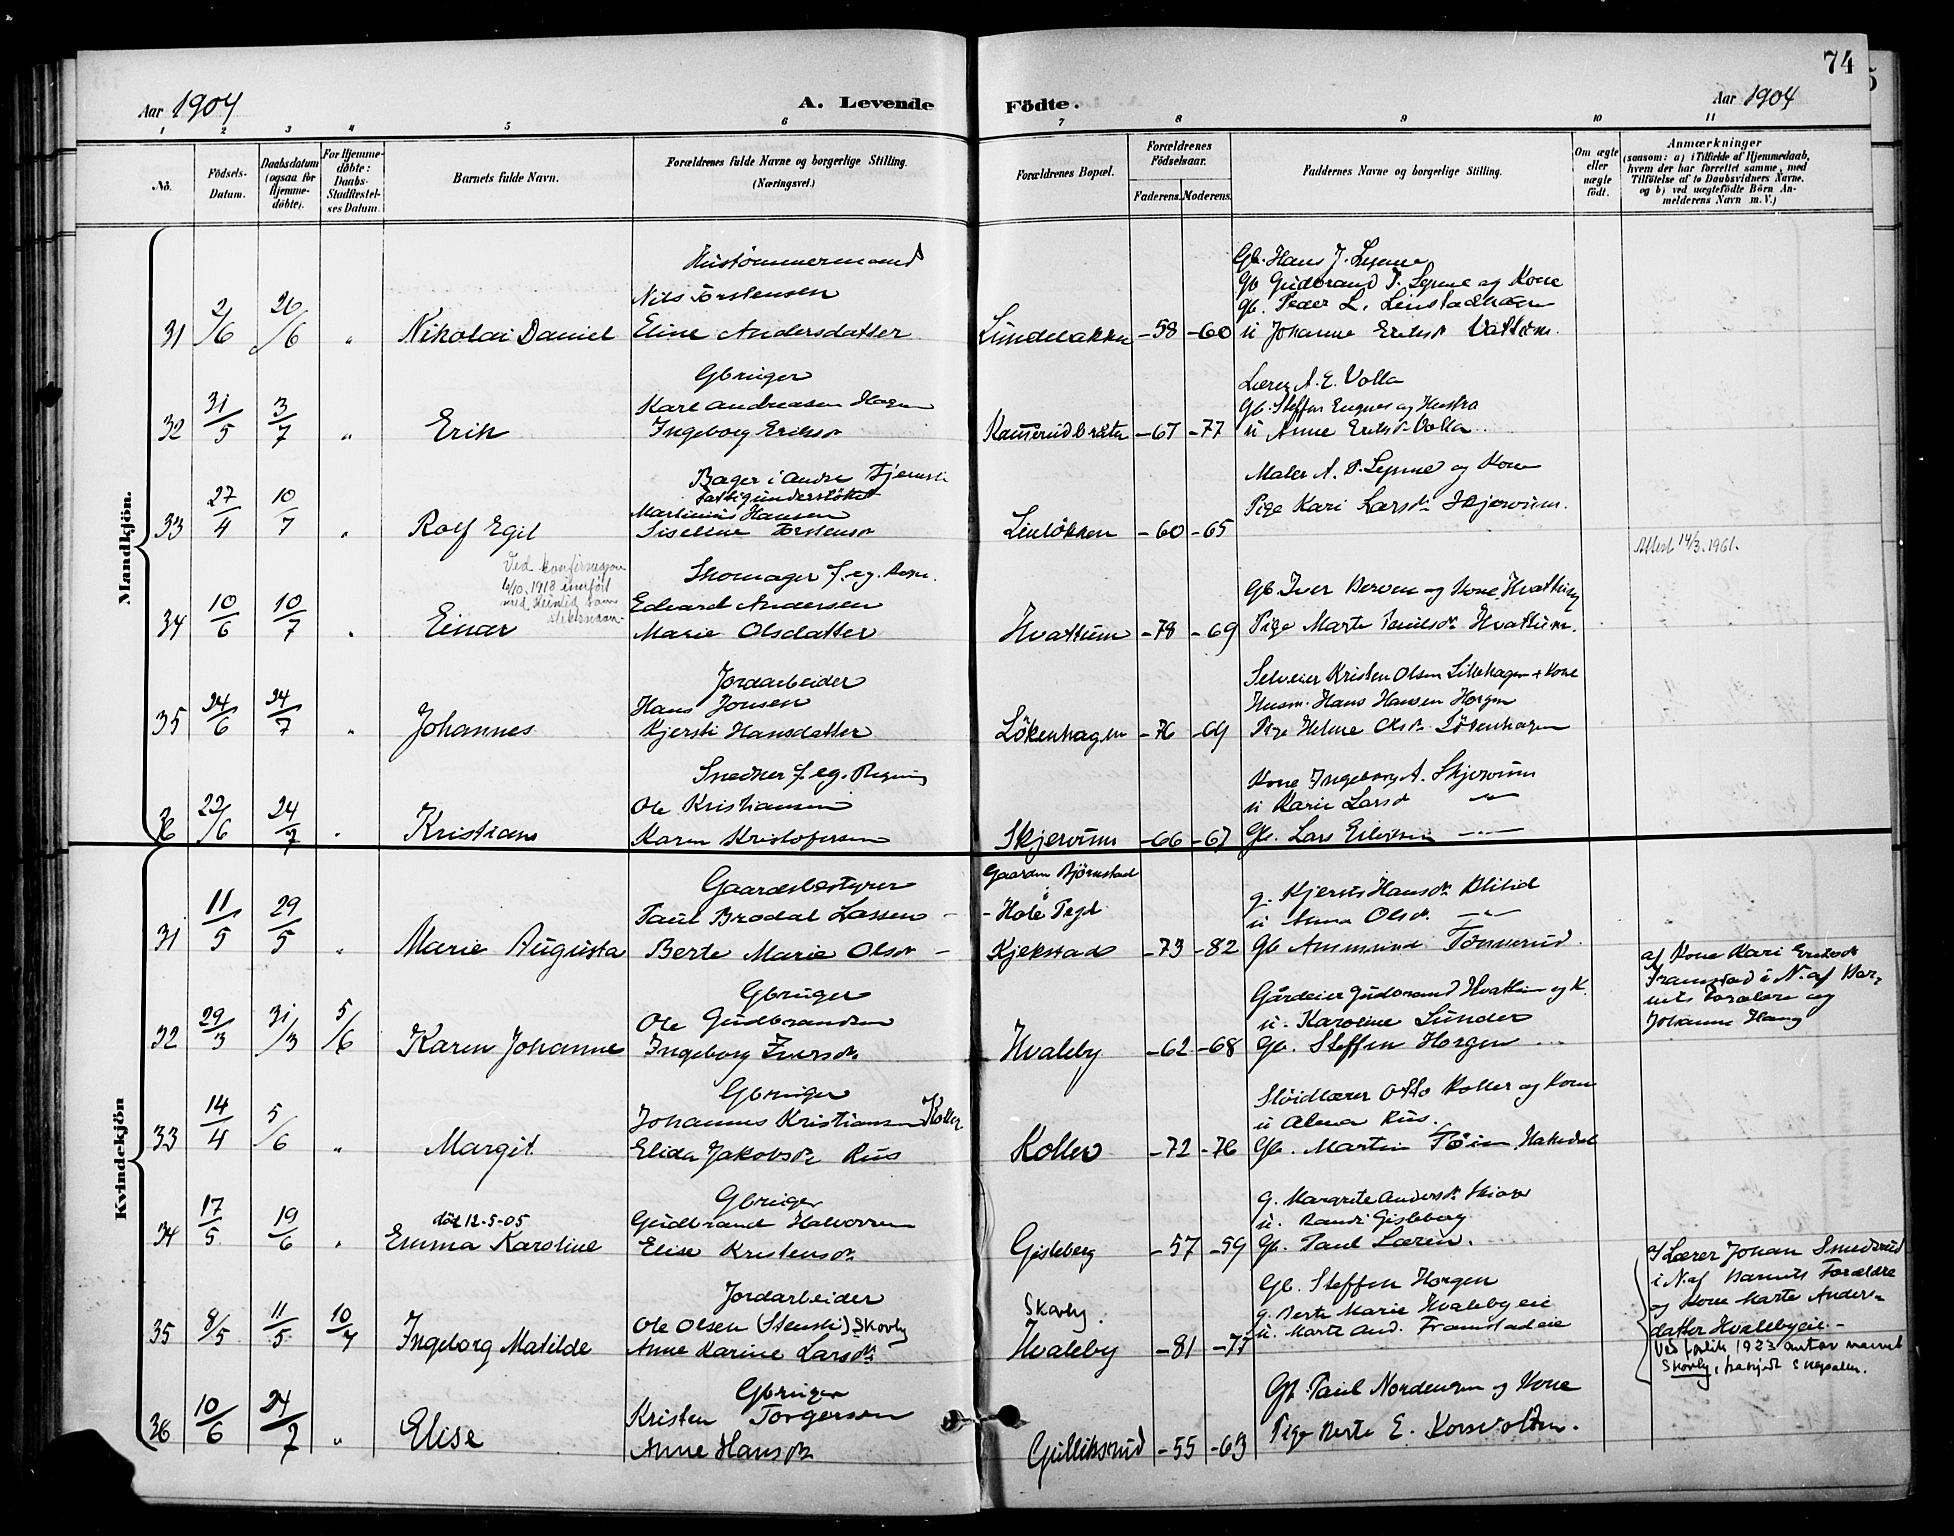 74
Aar 1904
A. Levende
Födte.
Aar 1904
1 2 3 4 5 6 7 8 9 10 11
No.
Födsels-Datum.
Daabsdatum (ogsaa for Hjemme-döbte).
For Hjemme-döbte: Daabs-Stadfæstel-ses Datum.
Barnets fulde Navn.
Forældrenes fulde Navne og borgerlige Stilling.
(Næringsvei.)
Forældrenes Bopæl.
Forældrenes Födselsaar.
Faderens. Moderens.
Faddernes Navne og borgerlige Stilling.
Om ægte eller uægte födt.
Anmærkninger
(saasom: a) i Tilfælde af Hjemmedaab,
hvem der har forrettet samme, med
Tilföielse af to Daabsvidners Navne.
og b) ved uægtefödte Börn An-
melderens Navn m. V.)
Mandkjön.
Hustømmermand
Nils Torstensen
31 2/6 26/6 " Nikolai Daniel Eline Andersdatter
Lundebakken -58 -60
Gb. Hans J. Lynne
Gb Gudbrand P. Lynne og Kone
Gb. Peder L. Linstadhagen
u Johanne Eriksd Vattum.
Gbruger
Karl Andreasen Hagen
32 31/5 3/7 " Erik Ingeborg Eriksd
-67 -77
Lærer A. E. Volla
Gb. Steffen Engnes og Hustru
u Anne Eriksd Volla.
Bager i Andre Tjeneste
Fattigunderstøttet
Martinius Hansen
33 27/4 10/7 " Rolf Egil Liseline Torstensd
Linløkken -60 -65
Maler A. P. Lynne og Kone
Pige Kari Larsd. Skjervum.
Attest 14/3.1961.
Ved konfirmasjon
6/10.1918 innført
med
Skomager f. eg. Regn.
Edvard Andersen
34 10/6 10/7 " Einar Marie Olsdatter
Hvattum -78 -69
Gb Iver Berven og Kone Hvattum
Pige Marte Paulsd. Hvattum.
Jordarbeider
Hans Jonsen
35 24/6 24/7 " Johannes Kjersti Hansdatter
Løkenhagen -76 -69
Selveier Kristen Olsen Lillehagen + Kone
Husm. Hans Hansen Horgen
Pige Helene Olsd. Løkenhagen
Snedker f. eg. Regning
Ole Kristiansen
36 22/6 24/7 " Kristian Karen Kristofersen
Skjervum -66 -67
Kone Ingeborg A. Skjervum
u Karie Larsd —"—
Gb. Lars —"—
Kvindekjön
Gaardsbestyrer
Paul Brodal Lassen -
31 11/5 29/5 " Marie Augusta Berte Marie Olsd -
Gaarden Bjørnstad
i
- Hole Pgd.
Kjekstad -73 -82
g. Kjersti Hansd. Blilid
u Anna Olsd. —"—
Gb Ammund Tønnerud.
Gbruger
Ole Gudbrandsen
32 29/3 31/3 5/6 Karen Johanne Ingeborg Iversd.
Hvaleby -62 -68
Gårdeier Gudbrand Hvattum og K.
u. Karoline Lunder
Gb. Steffen Horgen ...
af Kone Kari Eriksd
Framstad i N. af Bar-
nets Forældre og
Johanne Haug
Gbruger
Johannes Kristiansen Koller
33 14/4 5/6 " Margit Elida Jakobsd. Rus
Koller -72 -76
Sløidlærer Otto Koller og Kone
u Alma Rus.
Gb. Martin Hakedal
Gbruger
død 12-5-05 Gudbrand Halvorsen
34 17/5 19/6 " Emma Karoline Elise Kristensd.
Gisleberg -57 -59
g. Margrete Andersd.
u. Randi Gisleberg
Gb. Paul Læren.
Jordarbeider
Ole Olsen (Stensli) Skovly
35 8/5 11/5 10/7 Ingeborg Matilde Anne Karine Larsd.
Skovly.
Hvaleby -81 -77
Gb. Steffen Horgen
g. Berte Marie Hvalebyeie
u. Marte And. Framstadeie
af Lærer Johan Smedsrud
i N. af Barnets Forældre
og Kone Marte Anders-
datter Hvalebyeie.-
1923 antar navnet
Skovly,
Gbruger
Kristen Torgersen
36 10/6 24/7 " Elise Anne Hansd.
Gulliksrud -55 -63
Gb. Paul Nordengen og Kone
Pige Berte E. Korsvolden.